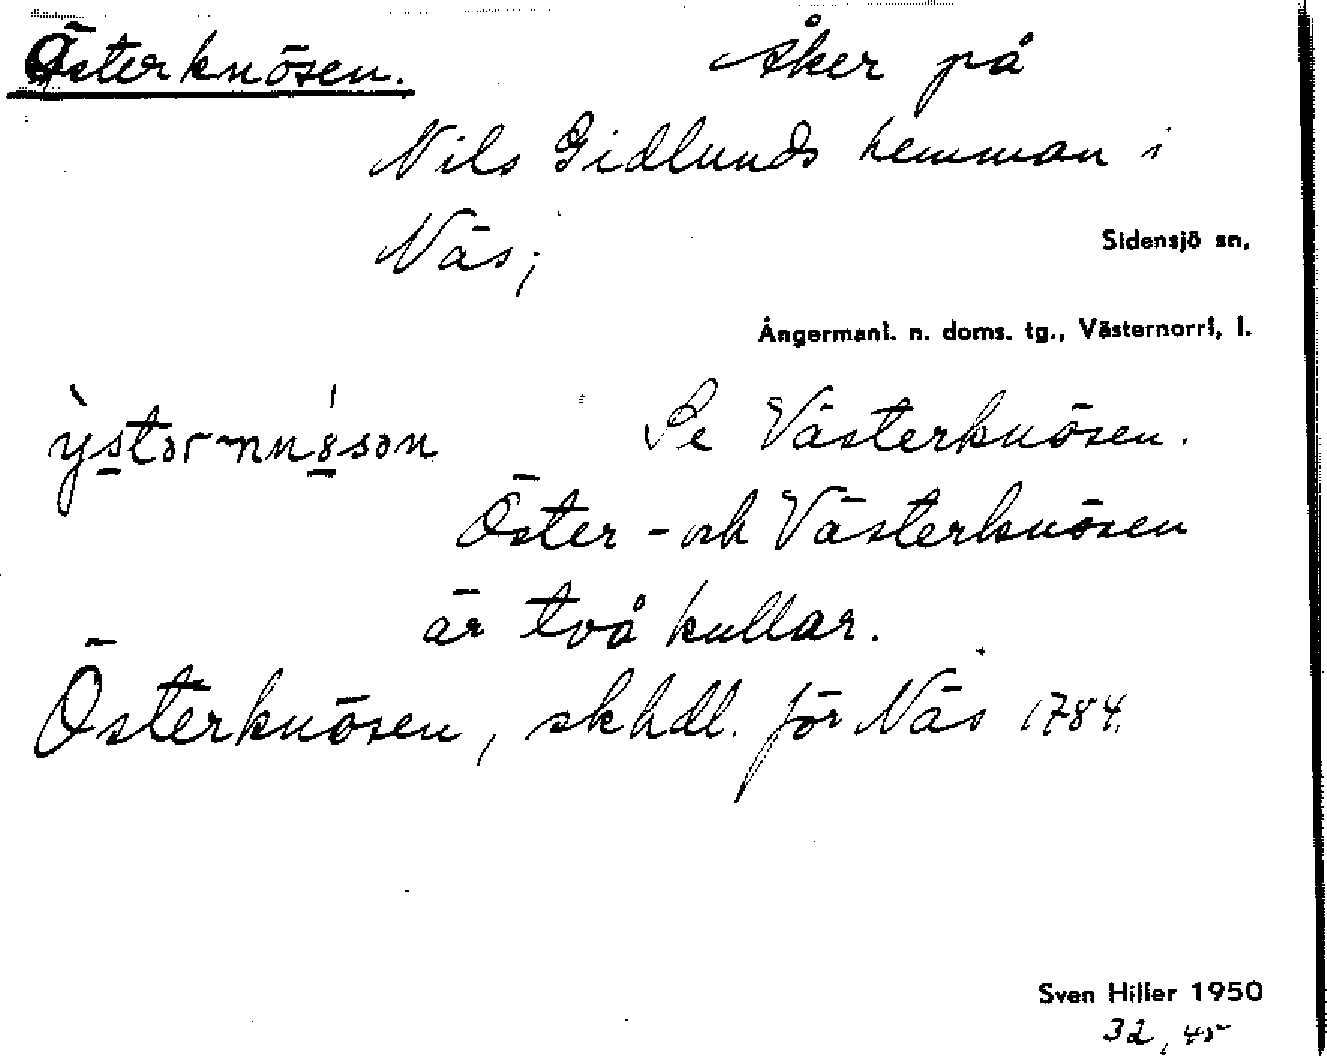 Österknösen. Åker på
Nils Gidlunds hemman i
Näs;
Sidensjö sn,
Ångermanl. n. doms. tg., Västernorrl, l.
Se Västerknösen.
Öster- och Västerknösen
är två kullar.
Österknösen, skhdl. för Näs 1784.
Sven Hiller 1950
32, 45